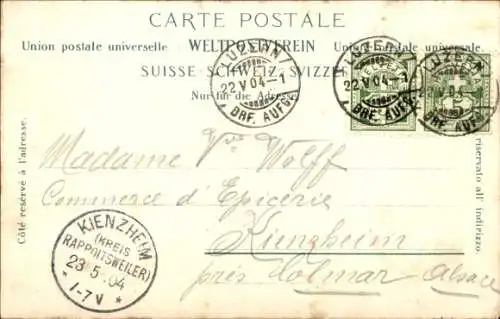 CARTE POSTALE
Union postale universelle WELTPOSTVEREIN Unione postale universale.
SUISSE SCHWEIZ SVIZZERA
Nur für die Adresse
LUZERN 1
22 V 04 – 1
BRF. AUFG.
LUZERN
22 V 04 – 1
BRF. AUFG.
LUZERN 1
22 V 04
BRF. AUFG.
Côté réservé à l'adresse.
riservato all' indirizzo.
Madame Vve Wolff
Commerce d'Epicerie
Kienzheim
près Colmar Alsace
KIENZHEIM
(KREIS
RAPPOITSWEILER)
23.5.04
* 1-7 V *